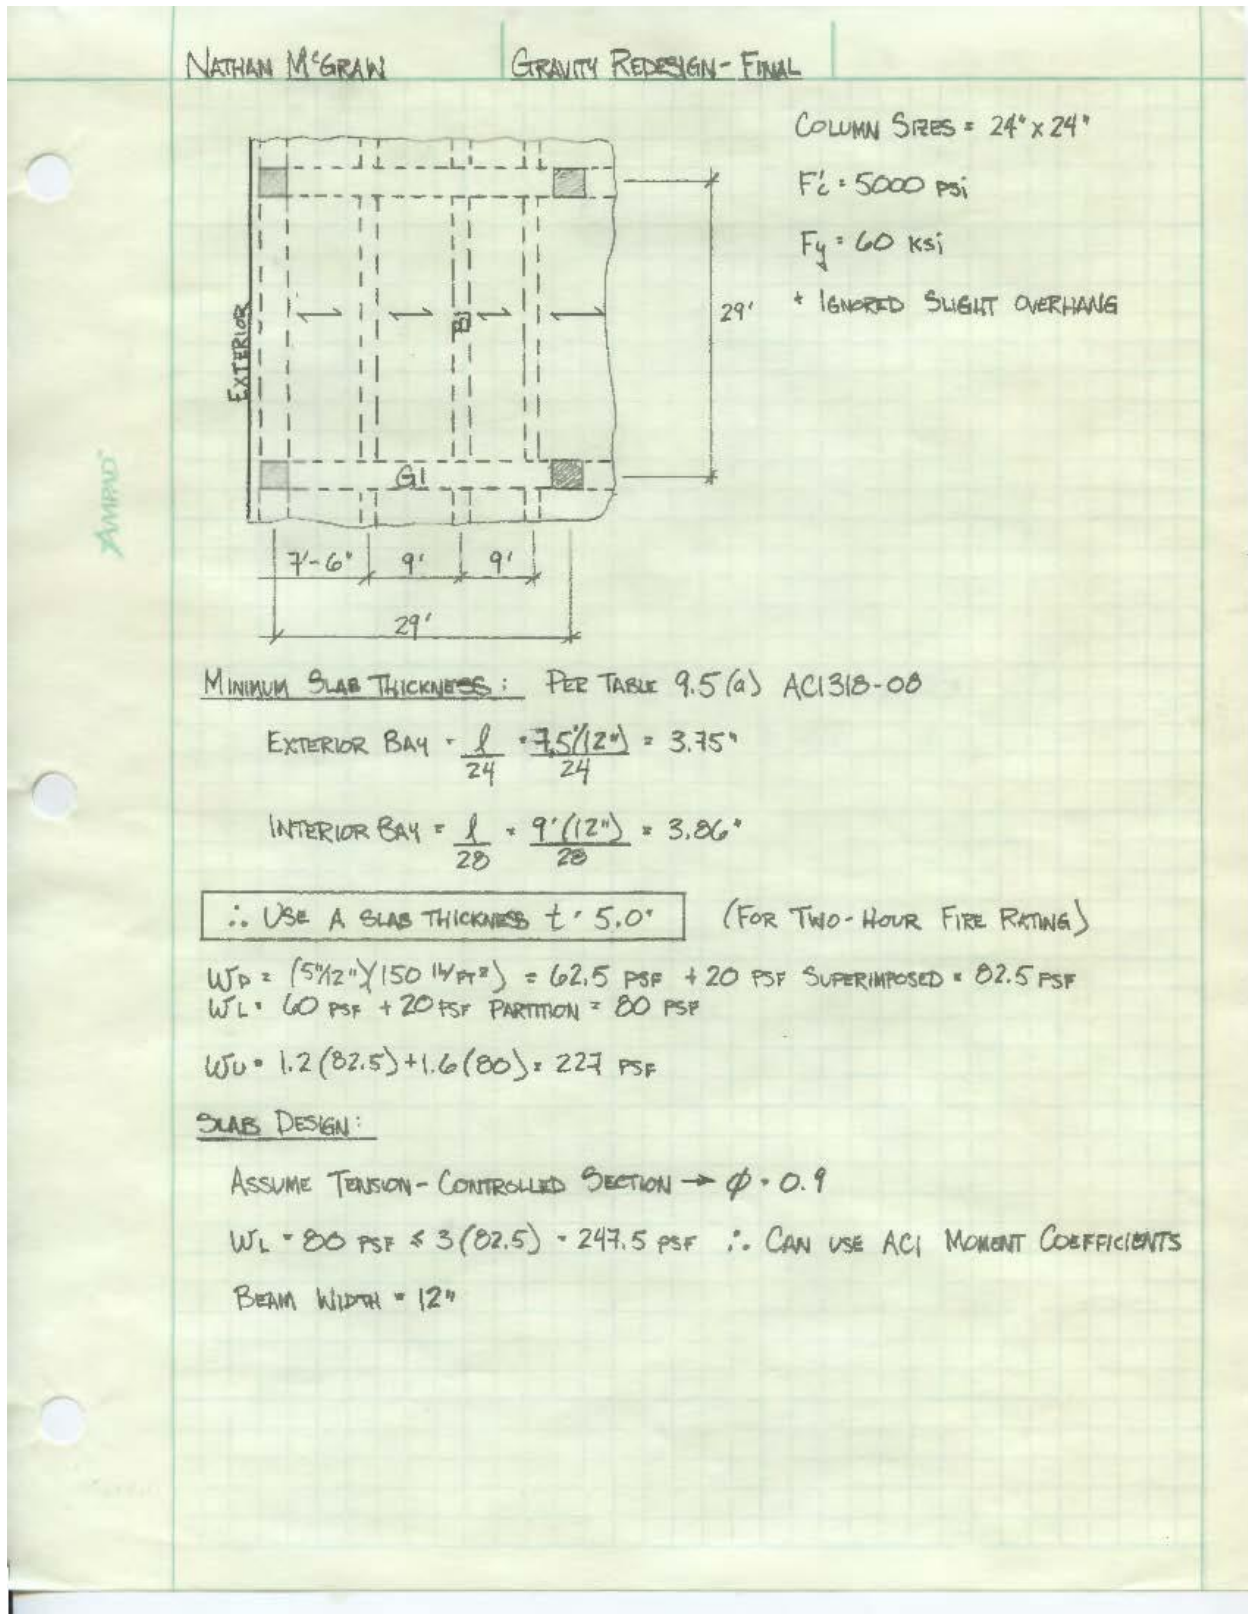 NATHAN McGRAW
GRAVITY REDESIGN - FINAL
COLUMN SIZES = 24" x 24"
F'c = 5000 psi
Fy = 60 ksi
* IGNORED SLIGHT OVERHANG
EXTERIOR
B1
29'
G1
7'-6" 9' 9'
29'
AMPAD
MINIMUM SLAB THICKNESS: PER TABLE 9.5(a) ACI318-08
EXTERIOR BAY = l/24 = 7.5'(12")/24 = 3.75"
INTERIOR BAY = l/28 = 9'(12")/28 = 3.86"
∴ USE A SLAB THICKNESS t = 5.0" (FOR TWO-HOUR FIRE RATING)
WD = (5"/12")(150 lb/ft³) = 62.5 PSF + 20 PSF SUPERIMPOSED = 82.5 PSF
WL = 60 PSF + 20 PSF PARTITION = 80 PSF
WU = 1.2(82.5)+1.6(80) = 227 PSF
SLAB DESIGN:
ASSUME TENSION-CONTROLLED SECTION → φ = 0.9
WL = 80 PSF ≤ 3(82.5) = 247.5 PSF ∴ CAN USE ACI MOMENT COEFFICIENTS
BEAM WIDTH = 12"